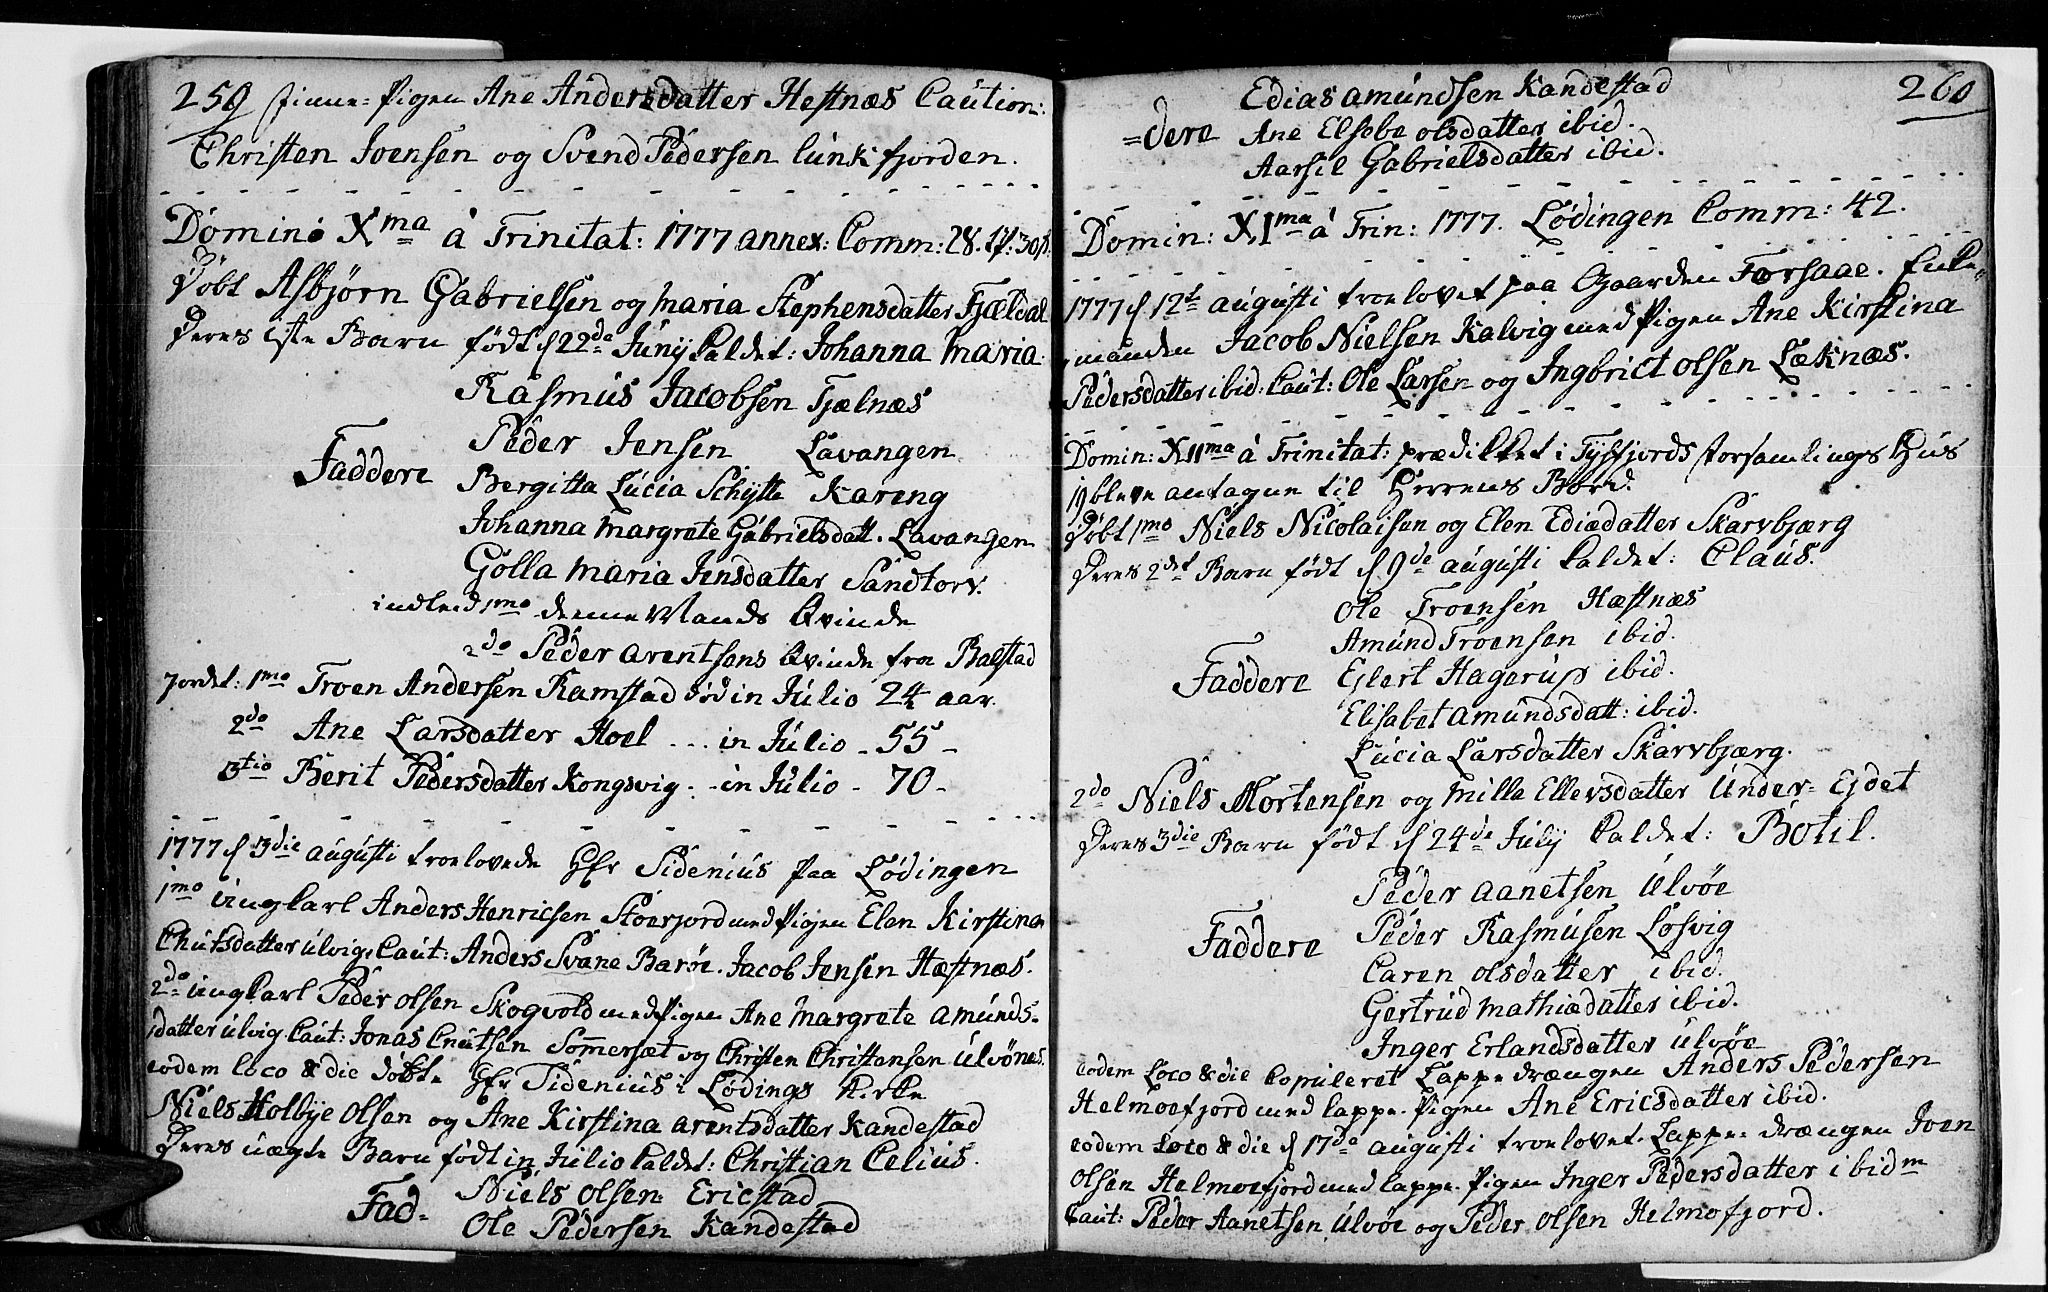 259 Tiene-Pigen Ane Andersdatter Hestnæs Caution:
Christen Joensen og Svend Pedersen Lunkfjorden.
Domino Xma á Trinitat: 1777 annex: Comm: 28.
Døbt Asbjørn Gabrielsen og Maria Stephensdatter Fjældal
Deres 1ste Barn født d 22de Junij kaldet: Johanna Maria:
Rasmus Jacobsen Fjælnæs
Peder Jensen Lavangen
Faddere Bergitta Lucia Schytte Kareng
Johanna Margrete Gabrielsdatt. Lavangen
Golla Maria Jensdatter Sandtorv.
indleed 1mo denne Mands Qvinde
2do Peder Arentsens Qvinde fra Balstad
Jordet: 1mo Troen Andersen Ramstad død in Julio 24 aar.
2do Ane Larsdatter Hoel ... in Julio - 55 -
3tio Berit Pedersdatter Kongsvig . - in Julio - 70 -
1777 d 3die augusti troelovede Hr Sidenius paa Lødingen
1mo ungkarl Anders Henricsen Stoerfjord med Pigen Elen Kirstina
Chutsdatter Ulvig. Caut: Anders Svane Barøe. Jacob Jensen Hæstnæs.
2do ungkarl Peder Olsen Skogvold med Pigen Ane Margrete Amunds-
datter Ulvig Caut: Jonas Cnutsen Sommersæt og Christen Christensen Ulvönæs.
eodem loco & die døbte Hr Sidenius i Lødings Kirke
Niels Holbye Olsen og Ane Kirstina Arentsdatter Kandestad
Deres uægte Barn født in Julio kaldet: Christian Celius.
Niels Olsen Ericstad
Fad-
Ole Pedersen Kandestad
260
Edias Amundsen Kandestad
=dere Ane Elsebe Olsdatter ibid.
Aarsil Gabrielsdatter ibid.
Domin: XIma á Trin: 1777. Lødingen Comm: 42.
1777 d 12te augusti troelovet paa Gaarden Forsaae. Enke-
manden Jacob Nielsen Kalvig med Pigen Ane Kirstina
Pedersdatter ibid. Caut: Ole Larsen og Ingbrict Olsen Læknæs.
Domin: XIIma á Trinitat: prædikket i Tysfjords Forsamlings Huus
19 bleve antagne til Herrens Bord.
Døbt 1mo Niels Nicolaisen og Elen Ediædatter Skarvbjærg
Deres 2det Barn født d 9de augusti kaldet: Claus.
Ole Troensen Hæstnæs
Amund Troensen ibid.
Faddere Ejlert Hagerup ibid.
Elisabet Amundsdatt: ibid.
Lucia Larsdatter Skarvbjærg.
2do Niels Mortensen og Mille Ellevsdatter Under-Ejdet
Deres 3die Barn født d 24de Julij kaldet: Botil.
Peder Aanetsen Ulvöe
Peder Rasmusen Losvig
Faddere
Caren Olsdatter ibid.
Gertrud Mathiædatter ibid.
Inger Erlandsdatter Ulvöe
eodem Loco & die Copuleret Lappe drængen Anders Pedersen
Helmoefjord med lappe-Pigen Ane Ericsdatter ibid.
eodem Loco & die d 17de augusti troelovet Lappe-drængen Joen
Olsen Helmoefjord med lappe-Pigen Inger Pedersdatter ibidm
Caut: Peder Aanetsen Ulvöe og Peder Olsen Helmofjord.